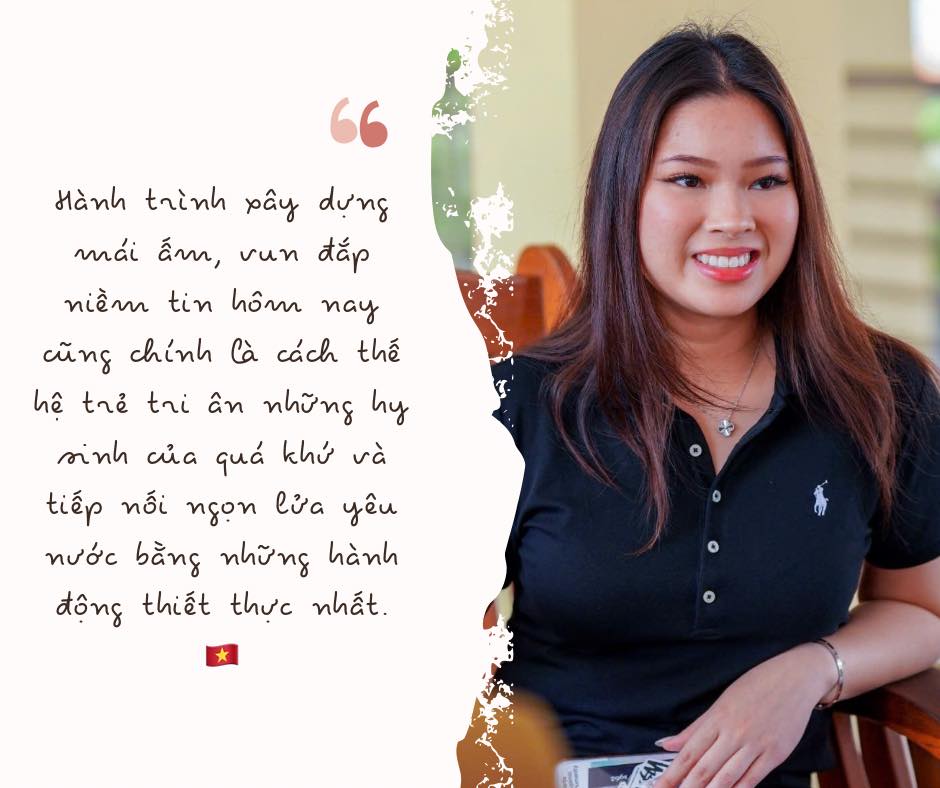 Hành trình xây dựng
mái ấm, vun đắp
niềm tin hôm nay
cũng chính là cách thế
hệ trẻ tri ân những hy
sinh của quá khứ và
tiếp nối ngọn lửa yêu
nước bằng những hành
động thiết thực nhất.